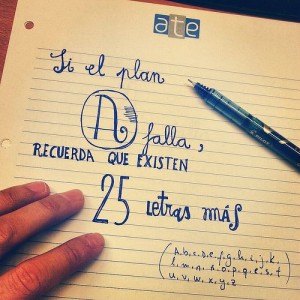 ate
Si el plan
A
falla,
RECUERDA QUE EXISTEN
25 letras más
(A,b,c,d,e,f,g,h,i,j,k,
l,m,n,o,p,q,r,s,t
u,v,w,x,y,z)